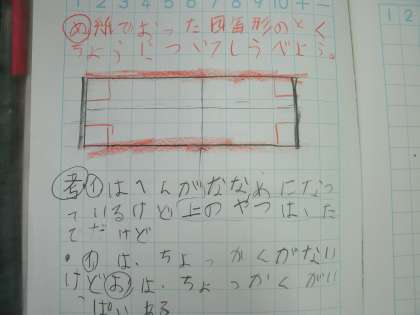 1 2 3 4 5 6 7 8 9 10 + −
1 2
め 紙でおった四角形のとく
ちょうについてしらべよう。
考・①はへんがななめになっ
ているけど上のやつは、た
てだけど
・①は、ちょっかくがない
けどおは、ちょっかくがい
っぱいある